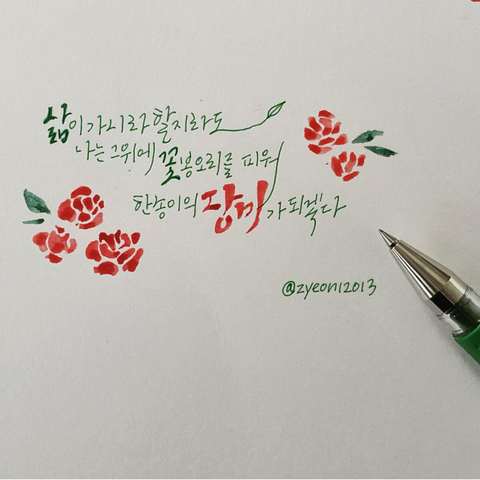 삶이 가시라 할지라도
나는 그위에 꽃봉오리를 피워
한송이의 장미가 되겠다
@zyeon12013